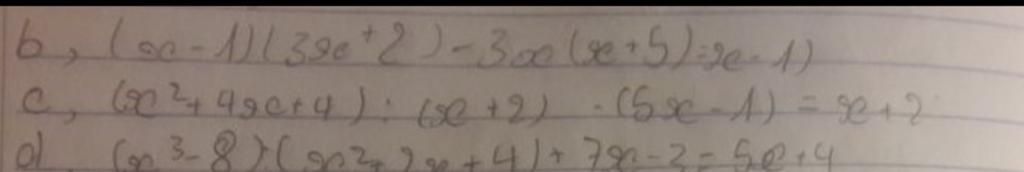 b, (x-1)(3x+2)-3x(x+5)=x-1)
c, (x²+4x+4):(x+2)-(5x-1)=x+2
d, (x³-8):(x²+2x+4)+7x-2=5x+4